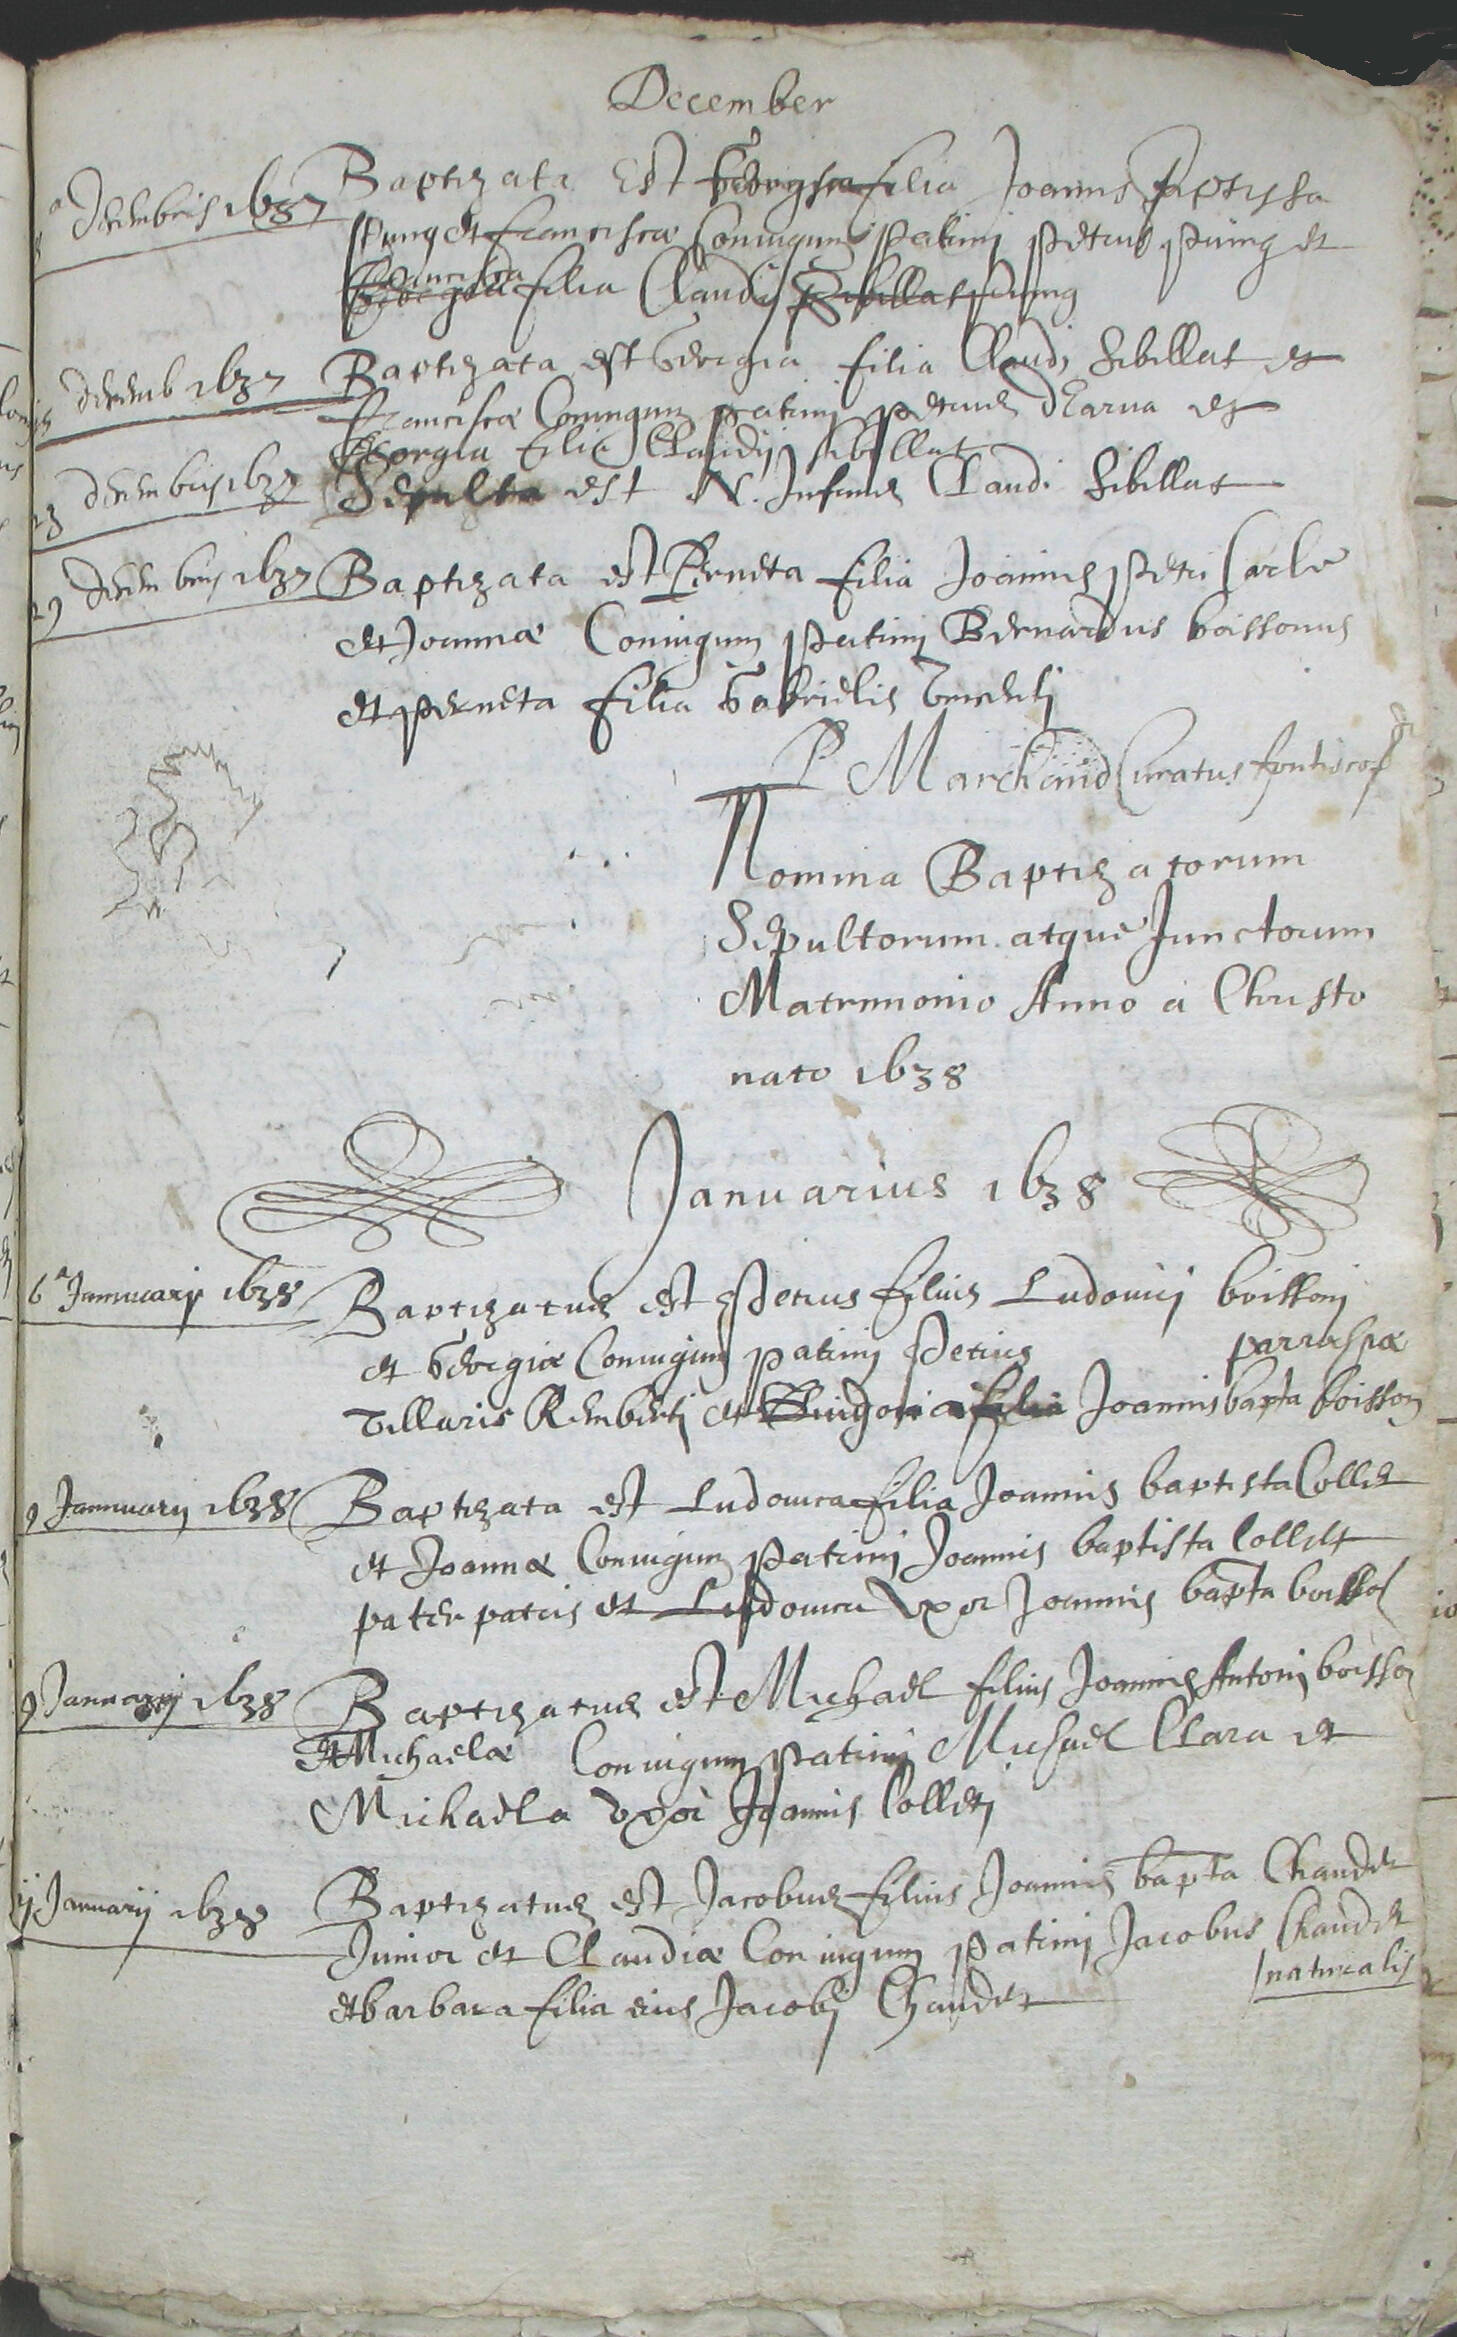 December
Decembris 1637
Baptizata Est filia Joannis Baptista
et franciscæ Coniugum patrini petrus et
francisca filia Claudij
decemb 1637
Baptizata est Georgia filia Claudi Sibillat et
franciscæ Coniugum patrini petrus et
Georgia filia Claudij Sibillat
23 decembris 1637
Sepulta est N. Infans Claudi Sibillat
29 decembris 1637
Baptizata est Perneta filia Joannis petri Carle
et Joannæ Coniugum patrini Bernardus boissonus
et perneta filia Gabrielis
P Marchand Curatus
Nomina Baptizatorum
Sepultorum atque Junctorum
Matrimonio Anno a Christo
nato 1638
Januarius 1638
6a Januuarij 1638
Baptizatus est Petrus filius Ludovici boissoni
et Georgiæ Coniugum patrini Petrus parrochiæ
Villaris Remberti et filia Joannis bapta boisson
9 Januuarij 1638
Baptizata est Ludovica filia Joannis baptista Collet
et Joannæ Coniugum patrini Joannis baptista Collet
pater patris et Ludovica Vxor Joannis bapta boisson
9 Januarij 1638
Baptizatus est Michael filius Joannis Antonij boisson
et Michaelæ Coniugum patrini Michael Clara et
Michaela vxor Joannis Colletj
ij Januarij 1638
Baptizatus est Jacobus filius Joannis bapta Chaudet
Junior et Claudiæ Coniugum patrini Jacobus Chaudet
naturalis
et barbara filia eius Jacobj Chaudet